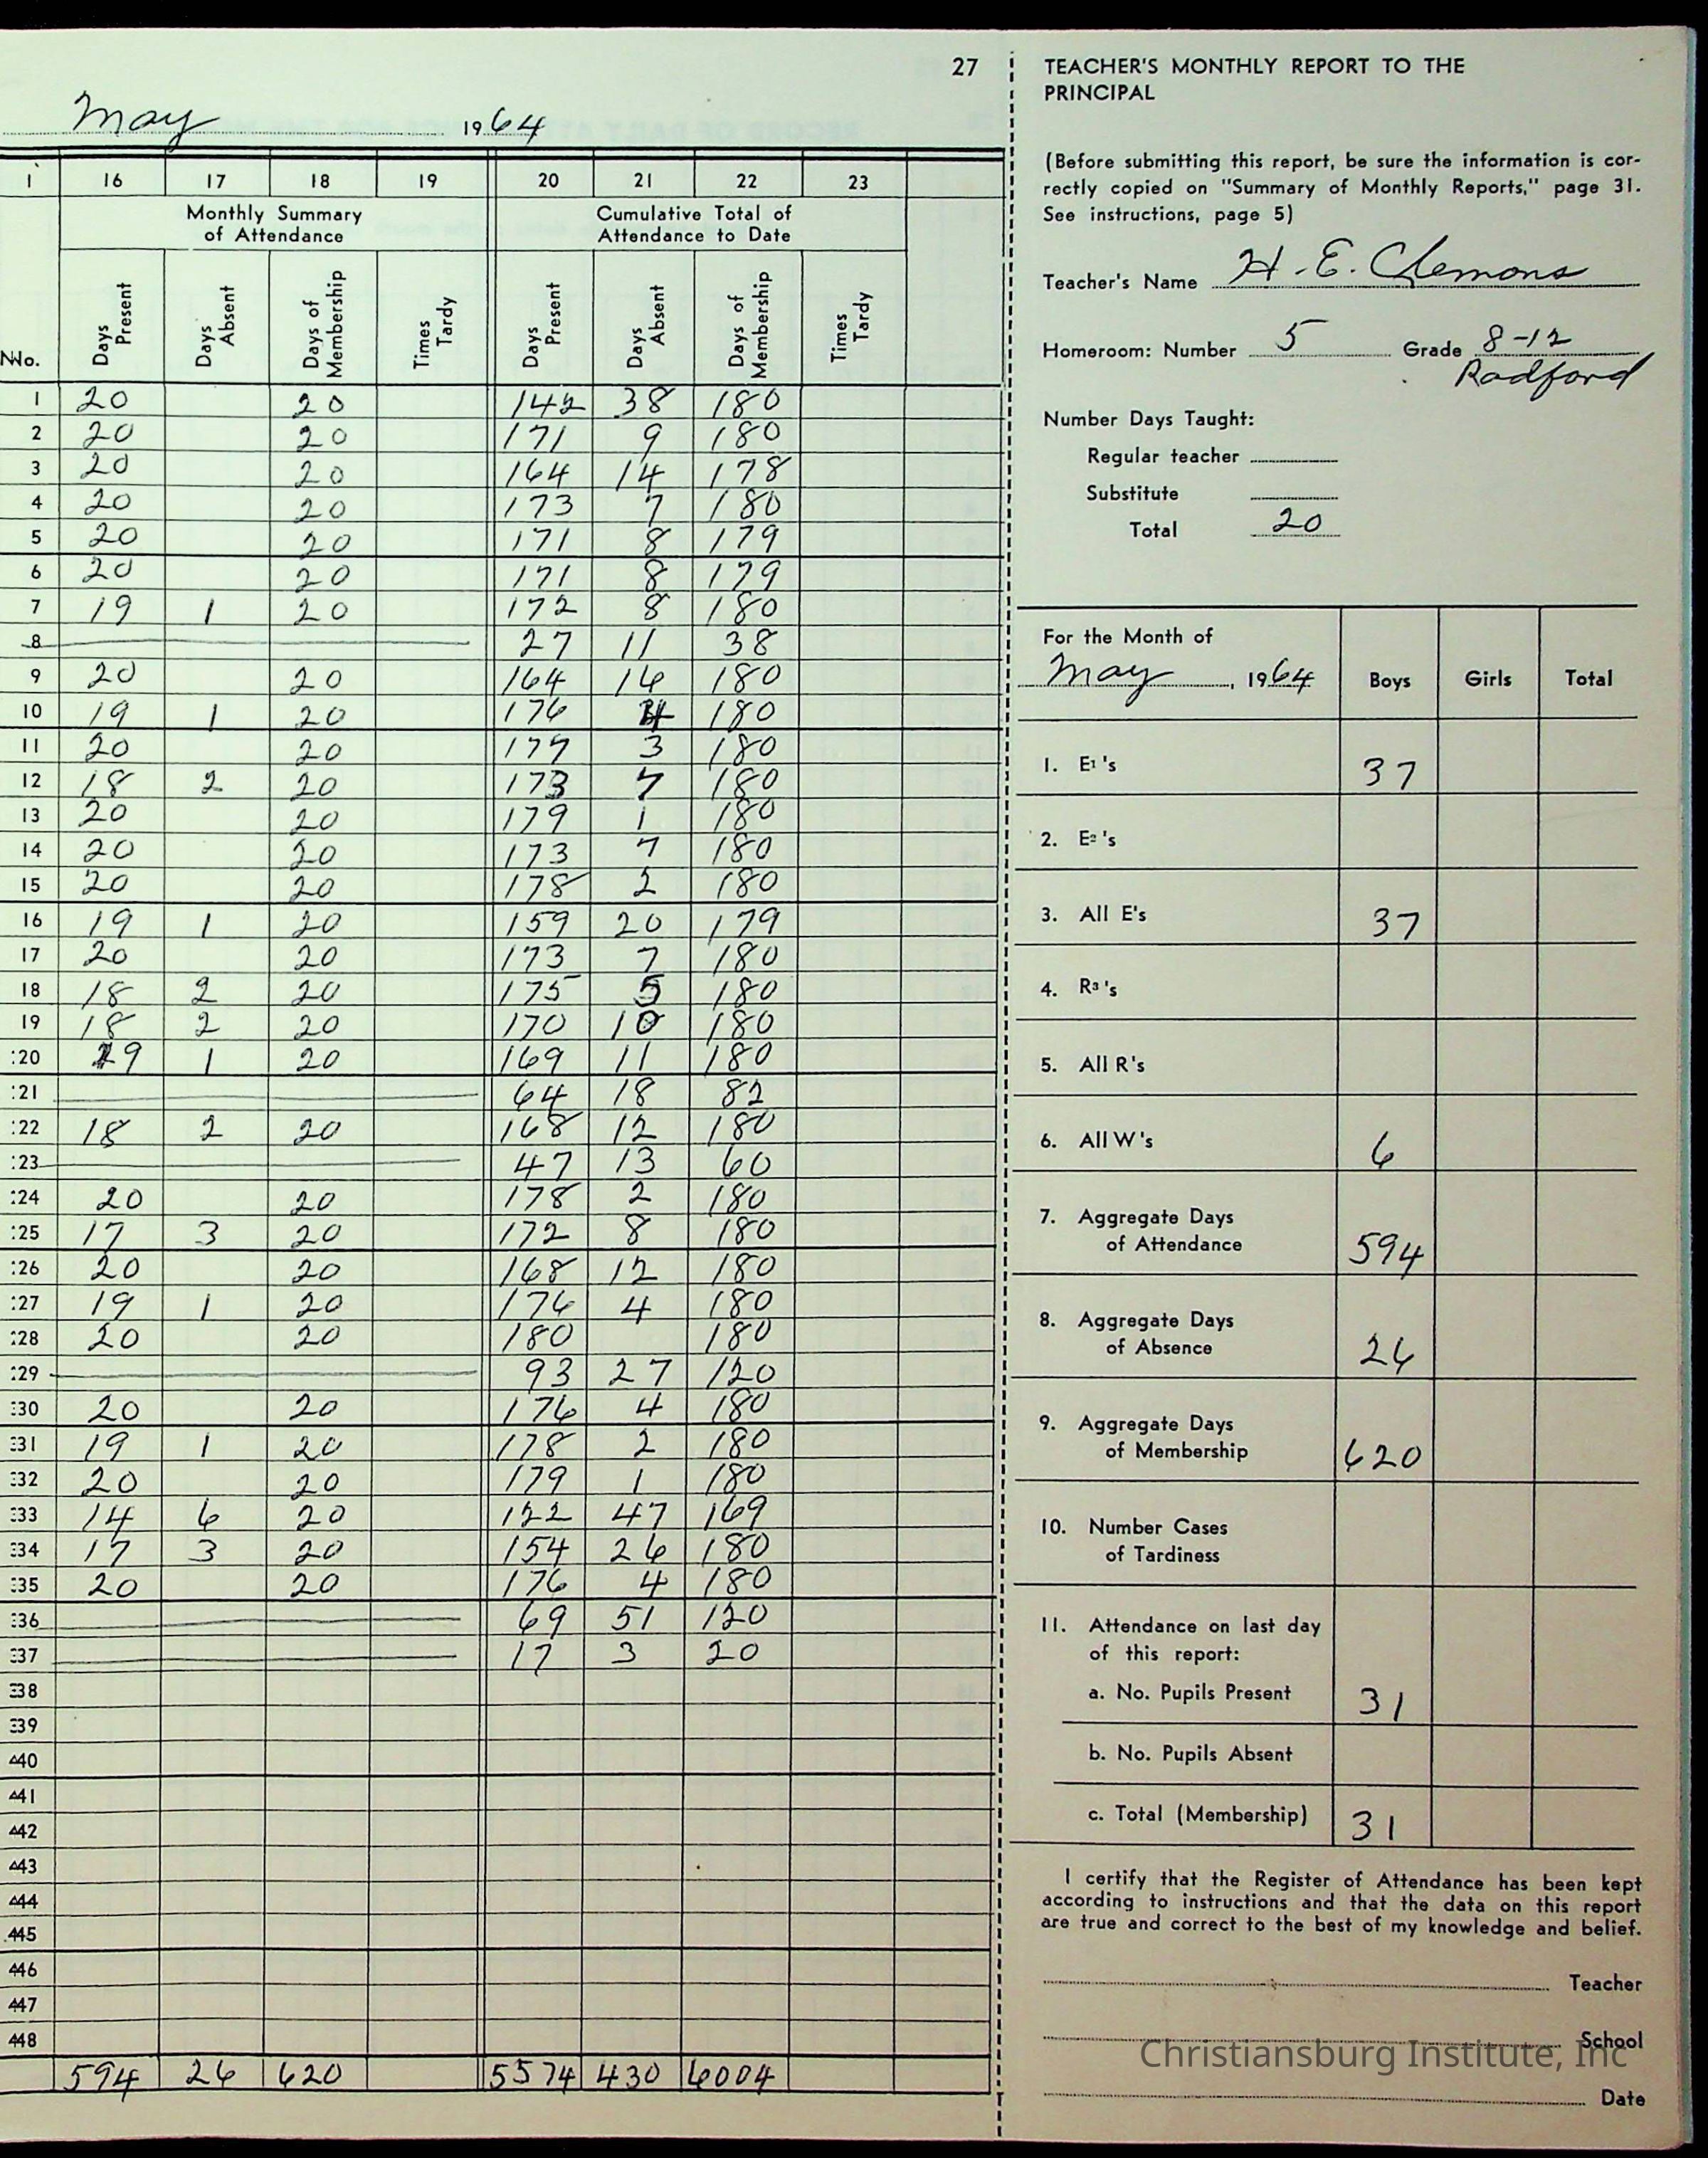 27
May 1964
1 16 17 18 19 20 21 22 23
Monthly Summary of Attendance Cumulative Total of Attendance to Date
No. Days Present Days Absent Days of Membership Times Tardy Days Present Days Absent Days of Membership Times Tardy
1 20 20 142 38 180
2 20 20 171 9 180
3 20 20 164 14 178
4 20 20 173 7 180
5 20 20 171 8 179
6 20 20 171 8 179
7 19 1 20 172 8 180
8 27 11 38
9 20 20 164 16 180
10 19 1 20 176 4 180
11 20 20 177 3 180
12 18 2 20 173 7 180
13 20 20 179 1 180
14 20 20 173 7 180
15 20 20 178 2 180
16 19 1 20 159 20 179
17 20 20 173 7 180
18 18 2 20 175 5 180
19 18 2 20 170 10 180
20 19 1 20 169 11 180
21 64 18 82
22 18 2 20 168 12 180
23 47 13 60
24 20 20 178 2 180
25 17 3 20 172 8 180
26 20 20 168 12 180
27 19 1 20 176 4 180
28 20 20 180 180
29 93 27 120
30 20 20 176 4 180
31 19 1 20 178 2 180
32 20 20 179 1 180
33 14 6 20 122 47 169
34 17 3 20 154 26 180
35 20 20 176 4 180
36 69 51 120
37 17 3 20
38
39
40
41
42
43
44
45
46
47
48
594 26 620 5574 430 6004
TEACHER'S MONTHLY REPORT TO THE
PRINCIPAL
(Before submitting this report, be sure the information is cor-
rectly copied on "Summary of Monthly Reports," page 31.
See instructions, page 5)
Teacher's Name H. E. Clemons
Homeroom: Number 5 Grade 8-12
Radford
Number Days Taught:
Regular teacher
Substitute
Total 20
For the Month of
May, 1964 Boys Girls Total
1. E¹'s 37
2. E²'s
3. All E's 37
4. R³'s
5. All R's
6. All W's 6
7. Aggregate Days
of Attendance 594
8. Aggregate Days
of Absence 26
9. Aggregate Days
of Membership 620
10. Number Cases
of Tardiness
11. Attendance on last day
of this report:
a. No. Pupils Present 31
b. No. Pupils Absent
c. Total (Membership) 31
I certify that the Register of Attendance has been kept
according to instructions and that the data on this report
are true and correct to the best of my knowledge and belief.
Teacher
School
Christiansburg Institute, Inc
Date